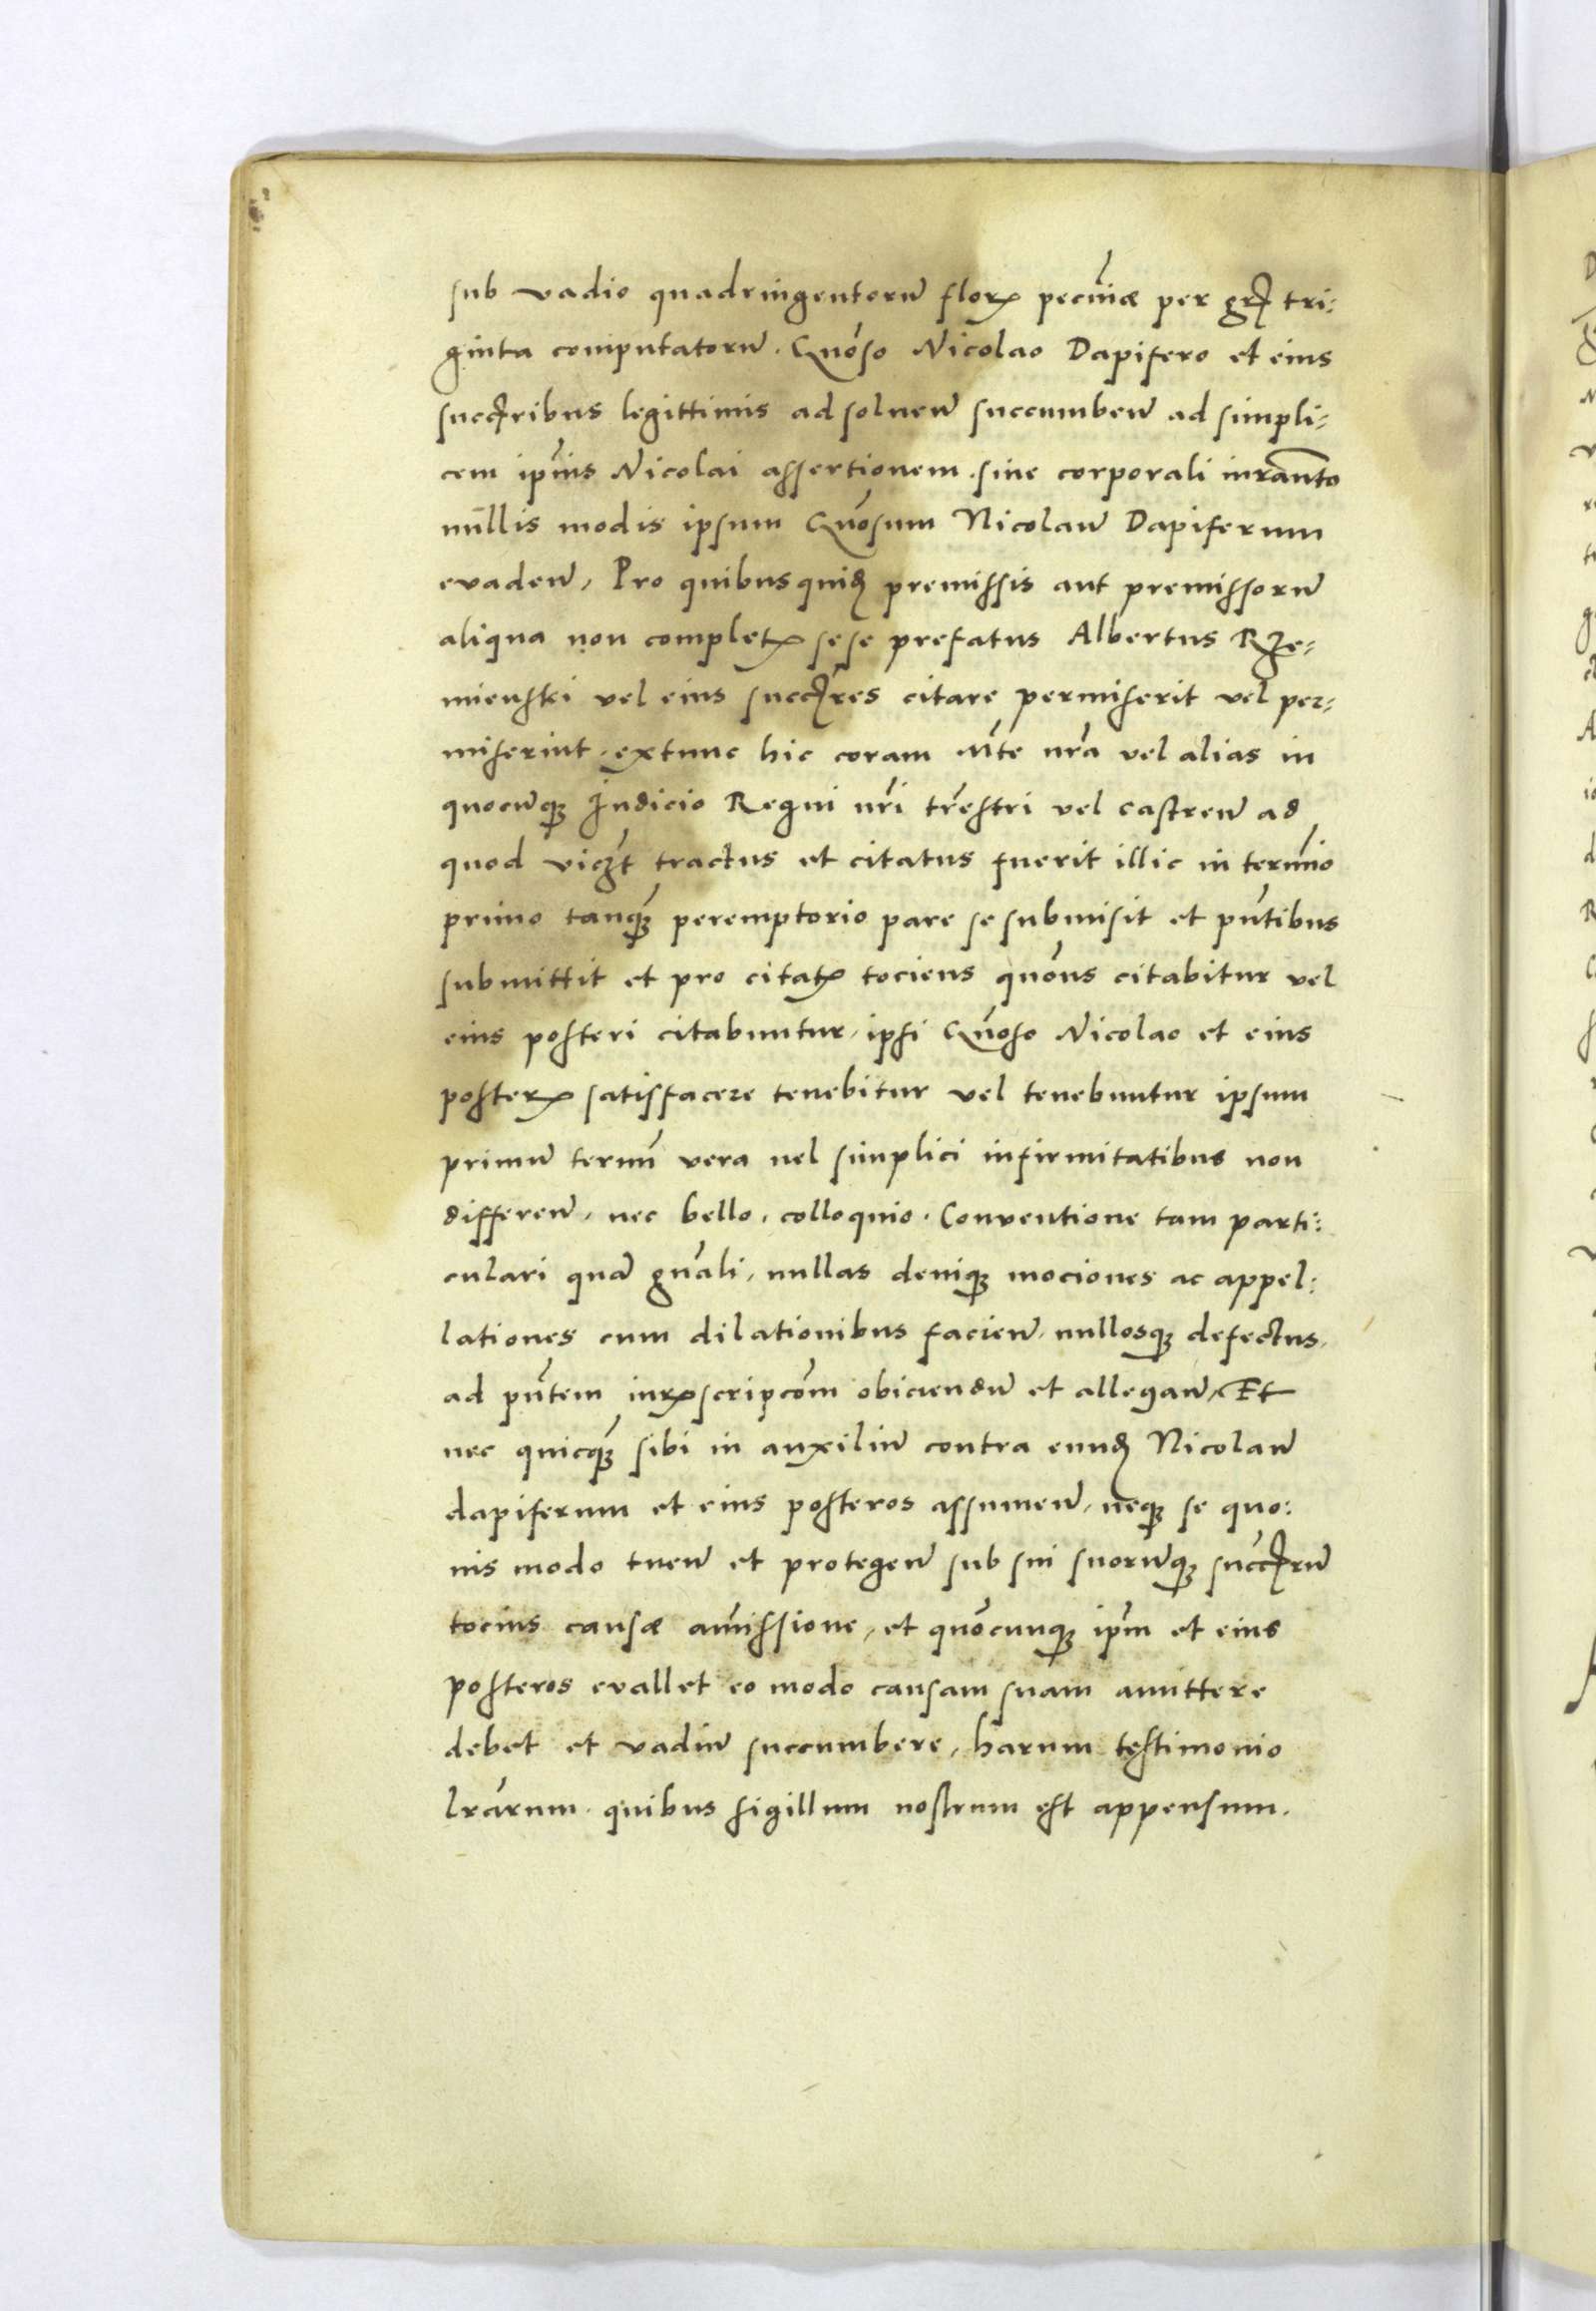 sub vadio quadringentorū florꝝ pecuniæ per gr̃ tri:
ginta computatorū. Gn̄oso Nicolao Dapifero et eius
succr̃ibus legittimis ad soluen̄ succumben̄ ad simpli:
cem ipīus Nicolai assertionem. sine corporali iuramt̄o
nullis modis ipsum Gn̄osum Nicolaū Dapiferum
evaden̄, Pro quibus quiđ premissis aut premissorū
aliqua non completꝝ sese prefatus Albertus Rze-
mienski vel eius succr̃es citare permiserit vel per-
miserint. extunc hic coram Mt̄e nr̄a vel alias in
quocūqꝫ Iudicio Regni nr̄i tr̄estri vel castren̄ ad
quod vicꝫt tractus et citatus fuerit illic in termīo
primo tanqꝫ peremptorio pare se submisit et pn̄tibus
submittit et pro citatꝝ tociens quōns citabitur vel
eius posteri citabuntur, ipsi Gn̄oso Nicolao et eius
posterꝝ satisfacere tenebitur vel tenebuntur ipsum
primū termn̄ vera uel simplici infirmitatibus non
differen̄, nec bello, colloquio. Conventione tam parti:
culari quā gn̄ali, nullas deniqꝫ mociones ac appel:
lationes cum dilationibus facien̄, nullosqꝫ defectus,
ad pn̄tem inrꝝscripcōm obiciendū et allegan̄, Et
nec quicqꝫ sibi in auxiliū contra eunđ Nicolaū
dapiferum et eius posteros assumen̄, neqꝫ se quo:
uis modo tuen̄ et protegen̄ sub sui suorūqꝫ succr̃ū
tocius causæ amissione, et quōcunqꝫ ipm̄ et eius
posteros evallet eo modo causam suam amittere
debet et vadiū succumbere, harum testimonio
lrārum. quibus sigillum nostrum est appensum.